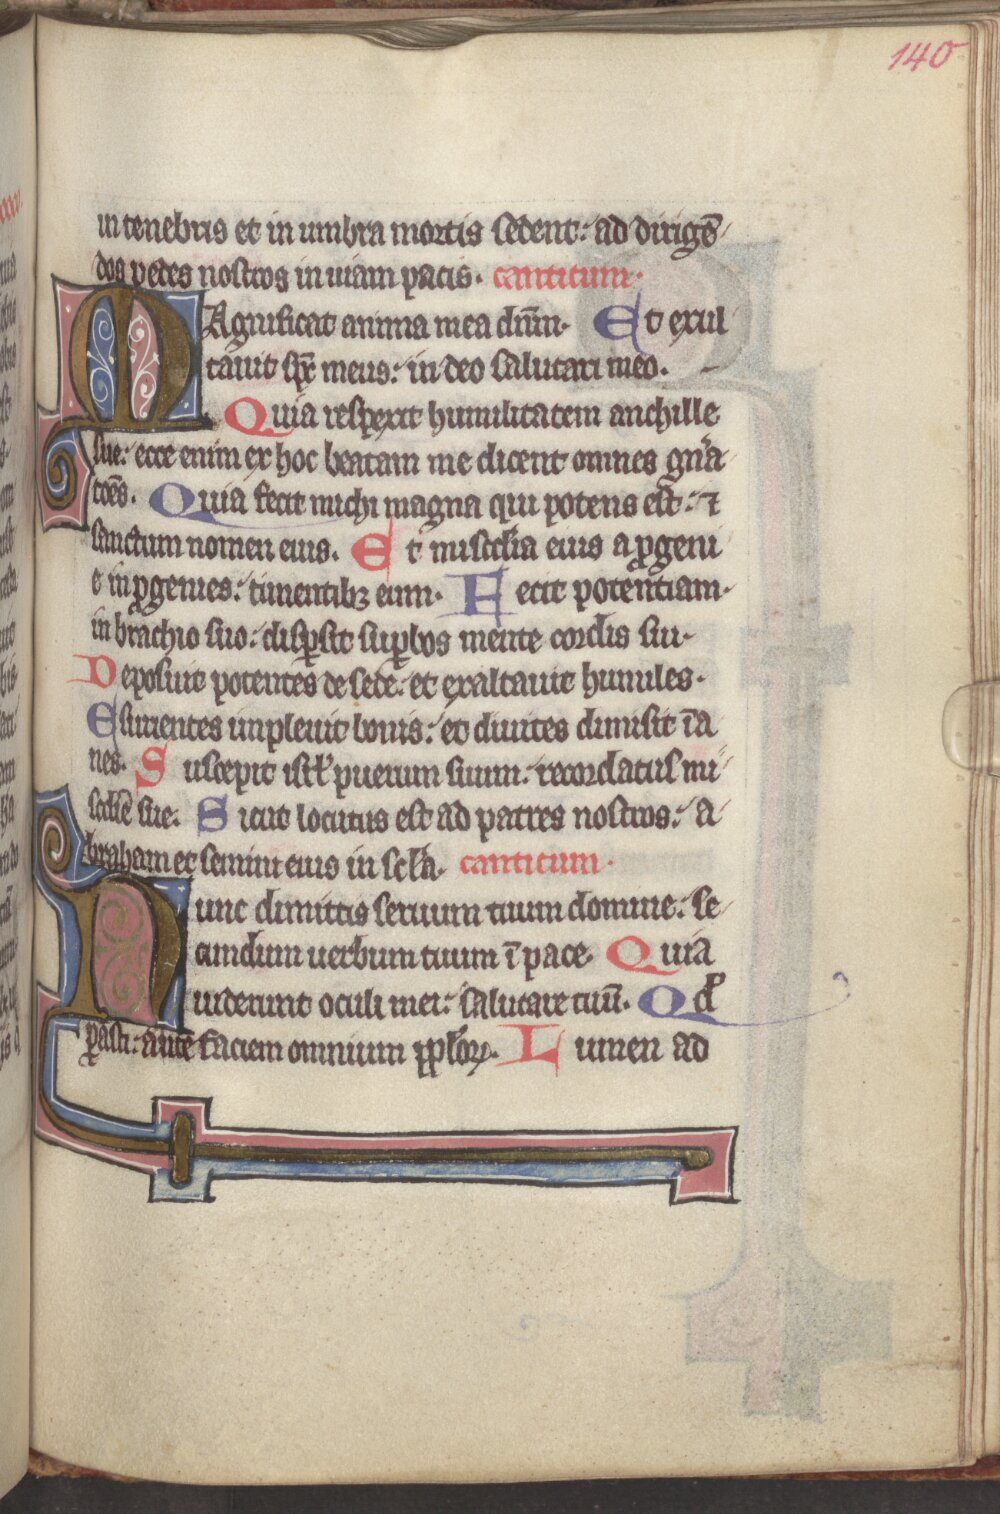 140
in tenebris et in umbra mortis sedent: ad dirigē
dos pedes nostros in uiam pacis. canticum.
MAgnificat anima mea dn̄m. Et exul
tauit sp̄c meus: in deo salutari meo.
Quia respexit humilitatem anchille
sue: ecce enim ex hoc beatam me dicent omnes gn̄a
tōes. Quia fecit michi magna qui potens est: ⁊
sanctum nomen eius. Et misc̄dia eius a ꝓgeni
e in ꝓgenies: timentibꝫ eum. Fecit potentiam
in brachio suo: disꝑsit suꝑbos mente cordis sui.
Deposuit potentes de sede: et exaltauit humiles.
Esurientes impleuit bonis: et diuites dimisit īa
nes. Suscepit isrl̄ puerum suum: recordatus mi
sc̄die sue. Sicut locutus est ad patres nostros: a
braham et semini eius in sc̄la. canticum.
Nunc dimittis seruum tuum domine: se
cundum uerbum tuum ī pace. Quia
uiderunt oculi mei: salutare tuū. Qd̄
ꝑasti: ante faciem omnium ppl̄oꝝ. Lumen ad